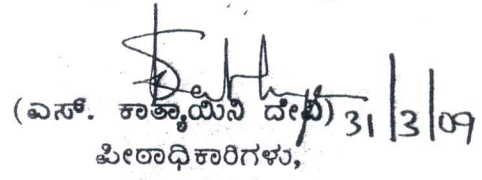 (ಎಸ್. ಕಾತ್ಯಾಯಿನಿ ದೇವಿ) 31/3/09
ಪೀಠಾಧಿಕಾರಿಗಳು,